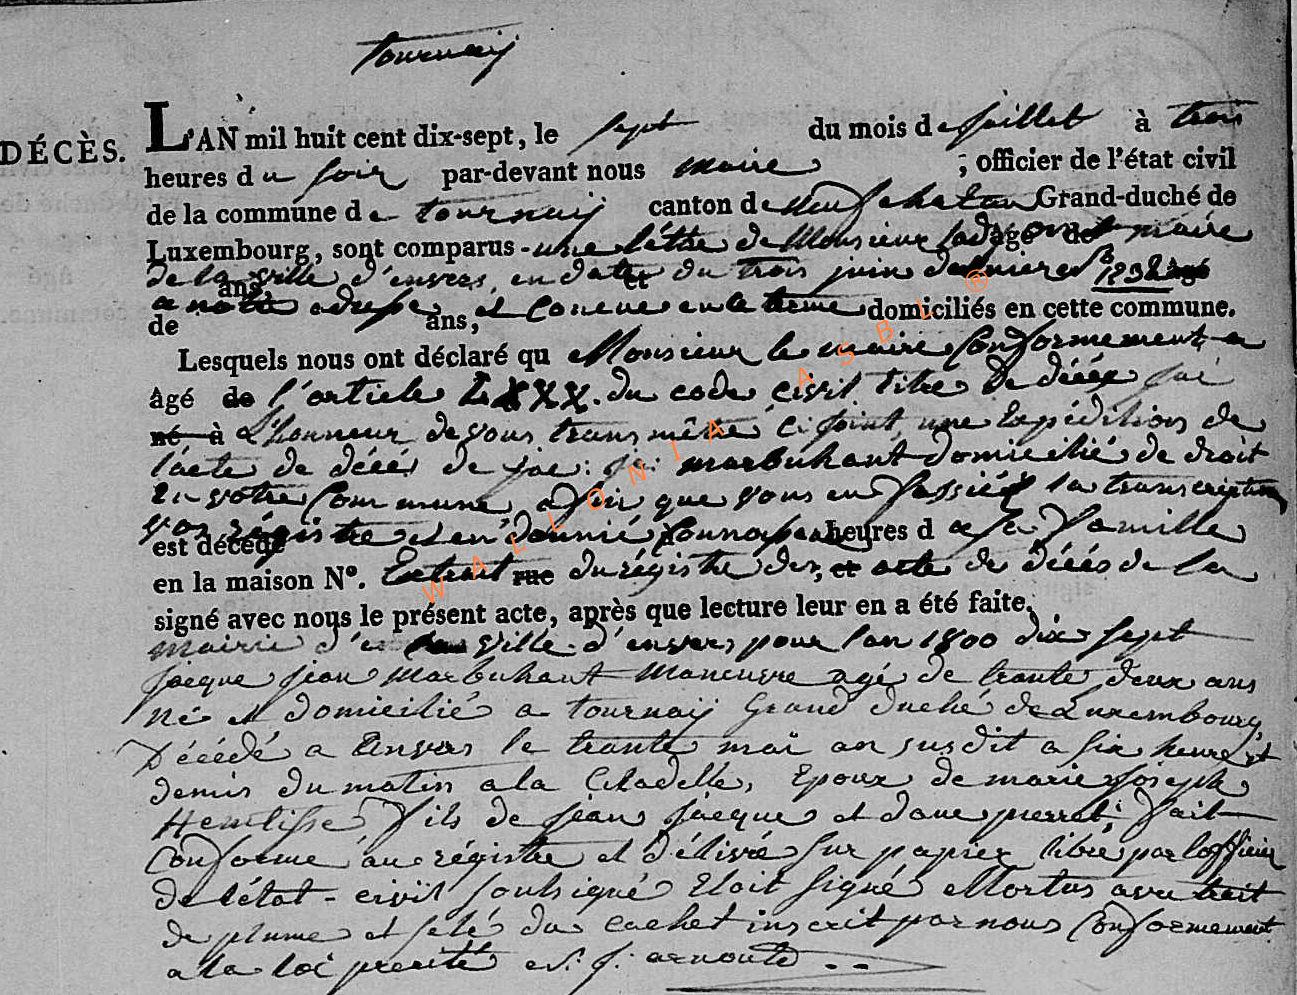 tournay
DÉCÈS. L'AN mil huit cent dix-sept, le sept du mois de juillet à trois
heures du soir par-devant nous maire ; officier de l'état civil
de la commune de tournay canton de neufchatau Grand-duché de
Luxembourg, sont comparus une lettre de Monsieur âgé de maire
de la ville d'envers, en date du trois juin dernier N° 1232 âgé
ans et
a notre adresse et concue en le terme domiciliés en cette commune.
de ans,
Lesquels nous ont déclaré qu Monsieur le maire Conformement a
âgé de l'article LXXX. du code civil titre De décés jai
né à L'honneur de vous transmetre ci joint une Expédition de
l'acte de décés de jac: je: marbuhant domicilié de droit
En votre Commune afin que vous en fassiéz la transcription
vos régistre et en donnié Connois heures d a sa famille
est décédé
en la maison N°. Extrait rue du régistre des, et acte de décés de la
signé avec nous le présent acte, après que lecture leur en a été faite.
mairie d'e ville d'envers pour l'an 1800 dix sept
jacque jean Marbuhant Maneuvre agé de trante deux ans
Né et domicilié a tournay Grand duché de Luxembourg,
Décédé a Envers le trante mai an susdit a six heure et
demis du matin a la Citadelle, Epoux de marie joseph
fils de jean jacque et d'anne pierret, fait
Conforme au régistre et délivré sur papier libre par l'officier
de l'état-civil soussigné Etoit signé Mortus avec trait
de plume et selé du cachet inscrit par nous Conformement
a la loi précité N. j. arnould
WALLONIA ASBL ®